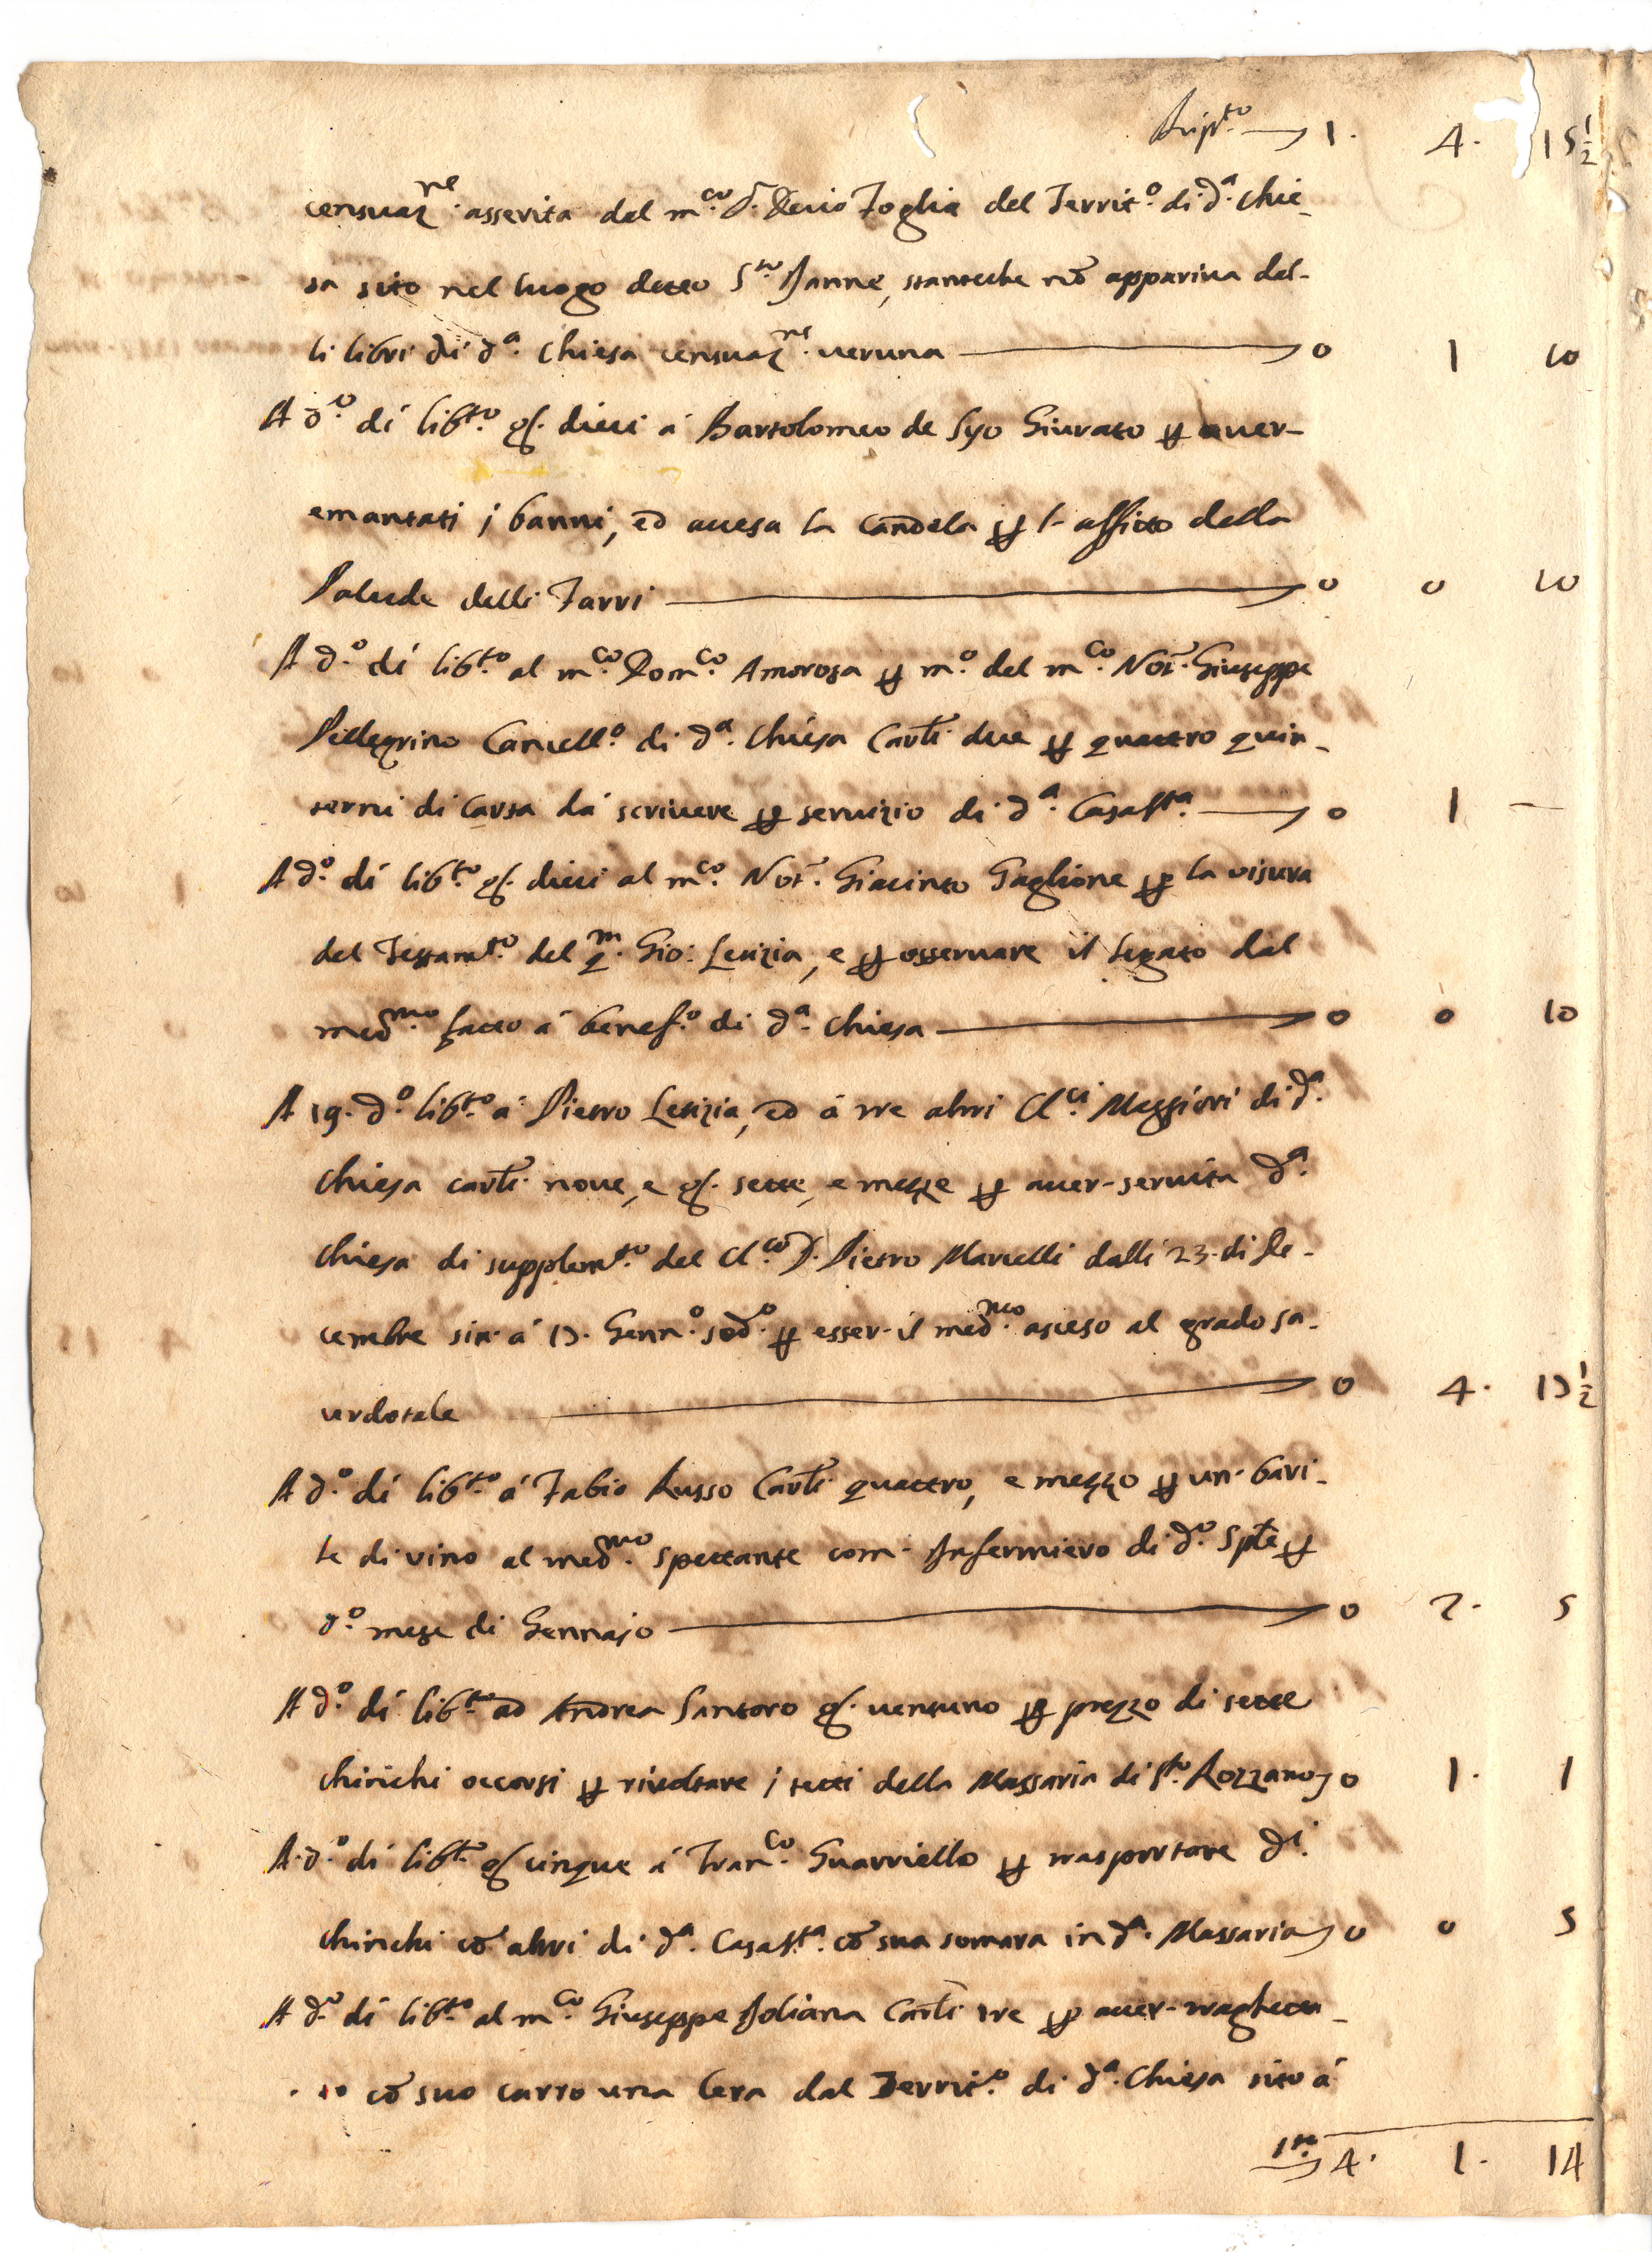 Rip.to 1. 4. 15½
censuaz.ne asserita dal m.co D. Decio Foglia del Territ.o di d.a Chie-
sa sito nel luogo detto S.to Janne, stanteche nō appariva dal-
li libri di d.a Chiesa censuaz.ne veruna 0 1 10
A d.o di lib.to g. dieci á Bartolomeo de Syo Giurato p aver-
emantati i banni, ed accesa la candela p l'affitto della
Palude delli Farri 0 0 10
A d.o di lib.to al m.co Dom.co Amorosa p m.o del m.co Not. Giuseppe
Pellegrino Cancell.o di d.a Chiesa Carli due p quattro quin-
terni di Carta dá scrivere p servizio di d.a Casa S.ta 0 1 —
A d.o di lib.to g. dieci al m.co Not. Giacinto Gaglione p la visura
del Testam.to del q.m Gio: Letizia, e p osservare il legato dal
med.mo fatto á benef.o di d.a Chiesa 0 0 10
A 19. d.o lib.to á Pietro Letizia, ed á tre altri Cl.ci Maggiori di d.a
Chiesa carli nove, e g. sette, e mezze p aver-servita d.a
Chiesa di supplem.to del Cl.co D. Pietro Marcelli dalli 23. di De-
cembre sin' á 17. Genn.o sod.o p esser-il med.mo asceso al grado sa-
cerdotale 0 4. 17½
A d.o di lib.to á Fabio Russo Carli quattro, e mezzo p un' bari-
le di vino al med.mo spettante com' Infermiero di d.o Sple p
d.o mese di Gennajo 0 2. 5
A d.o di lib.to ad Andrea Santoro g. ventuno p prezzo di sette
chirichi occorsi p rivoltare i tetti della Massaria di S.to Rozzano 0 1. 1
A d.o di lib.to g. cinque á Fran.co Guarriello p trasportare d.i
chirichi cō altri di d.a Casa S.ta cō sua somara in d.a Massaria 0 0 5
A d.o di lib.to al m.co Giuseppe Joliana Carli tre p aver-traghetta-
to cō suo carro una Cera dal Territ.o di d.a Chiesa sito á
4. 1. 14